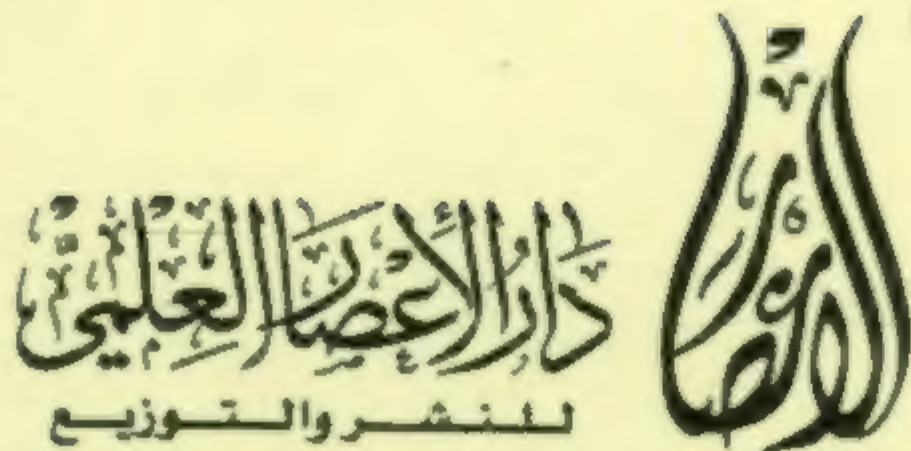 دَارُ الإِعْصَار العِلْمِي
للنشر والتوزيع